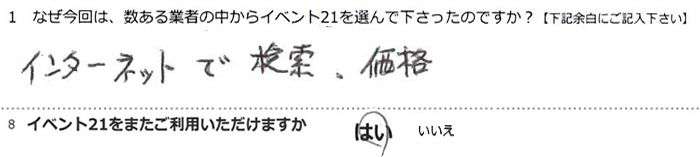 1 なぜ今回は、数ある業者の中からイベント21を選んで下さったのですか？【下記余白にご記入下さい】
インターネットで検索、価格
8 イベント21をまたご利用いただけますか はい いいえ